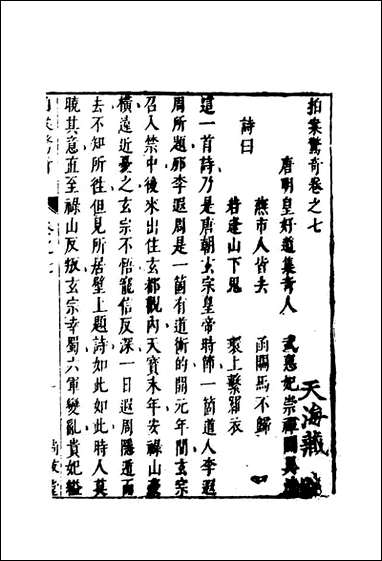 拍案驚奇卷之七
唐明皇好道集奇人 武惠妃崇禪鬬異
詩曰
燕市人皆去 函關馬不歸
若逢山下鬼 環上繫羅衣
這一首詩乃是唐朝玄宗皇帝時節一箇道人李遐
周所題那李遐周是一箇有道術的開元年間玄宗
召入禁中後來出住玄都觀內天寶末年安祿山豪
橫遠近憂之玄宗不悟寵信反深一日遐周隱遁而
去不知所往但見所居壁上題詩如此如此時人莫
曉其意直至祿山反叛玄宗幸蜀六軍變亂貴妃縊
天海藏
卷之七
尚友堂